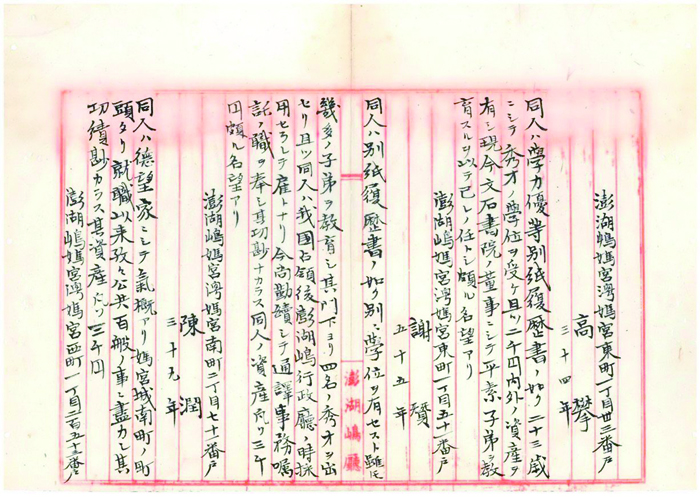 澎湖嶋媽宮湾媽宮東町一丁目卅三番戸
高攀
三十四年
同人ハ學力優等別紙履歴書ノ如ク二十三歳
ニシテ秀才ノ學位ヲ受ケ且ツ二千円内外ノ資産ヲ
有シ現今文石書院ノ董事ニシテ平素子弟ヲ教
育スルヲ以テ己レノ任トシ頗ル名望アリ
澎湖嶋媽宮湾媽宮東町一丁目五十番戸
謝賛
五十五年
同人ハ別紙履歴書ノ如ク別ニ學位ヲ有セスト雖モ
幾多ノ子弟ヲ教育シ其門下ヨリ四名ノ秀才ヲ出
セリ且ツ同人ハ我國占領後澎湖嶋行政廳ノ時採
用セラレテ雇トナリ今尚勤續シテ通譯事務嘱
託ノ職ヲ奉シ其功尠ナカラス同人ノ資産凡ソ三千
円頗ル名望アリ
澎湖嶋媽宮湾媽宮南町二丁目七十一番戸
陳潤
三十九年
同人ハ德望家ニシテ氣概アリ媽宮城南町ノ町
頭タリ就職以来孜々公共百般ノ事ニ盡力シ其
功績尠カラス其資産凡ソ三千円
澎湖嶋媽宮湾媽宮西町一丁目二百五十三番戸
澎湖嶋廳